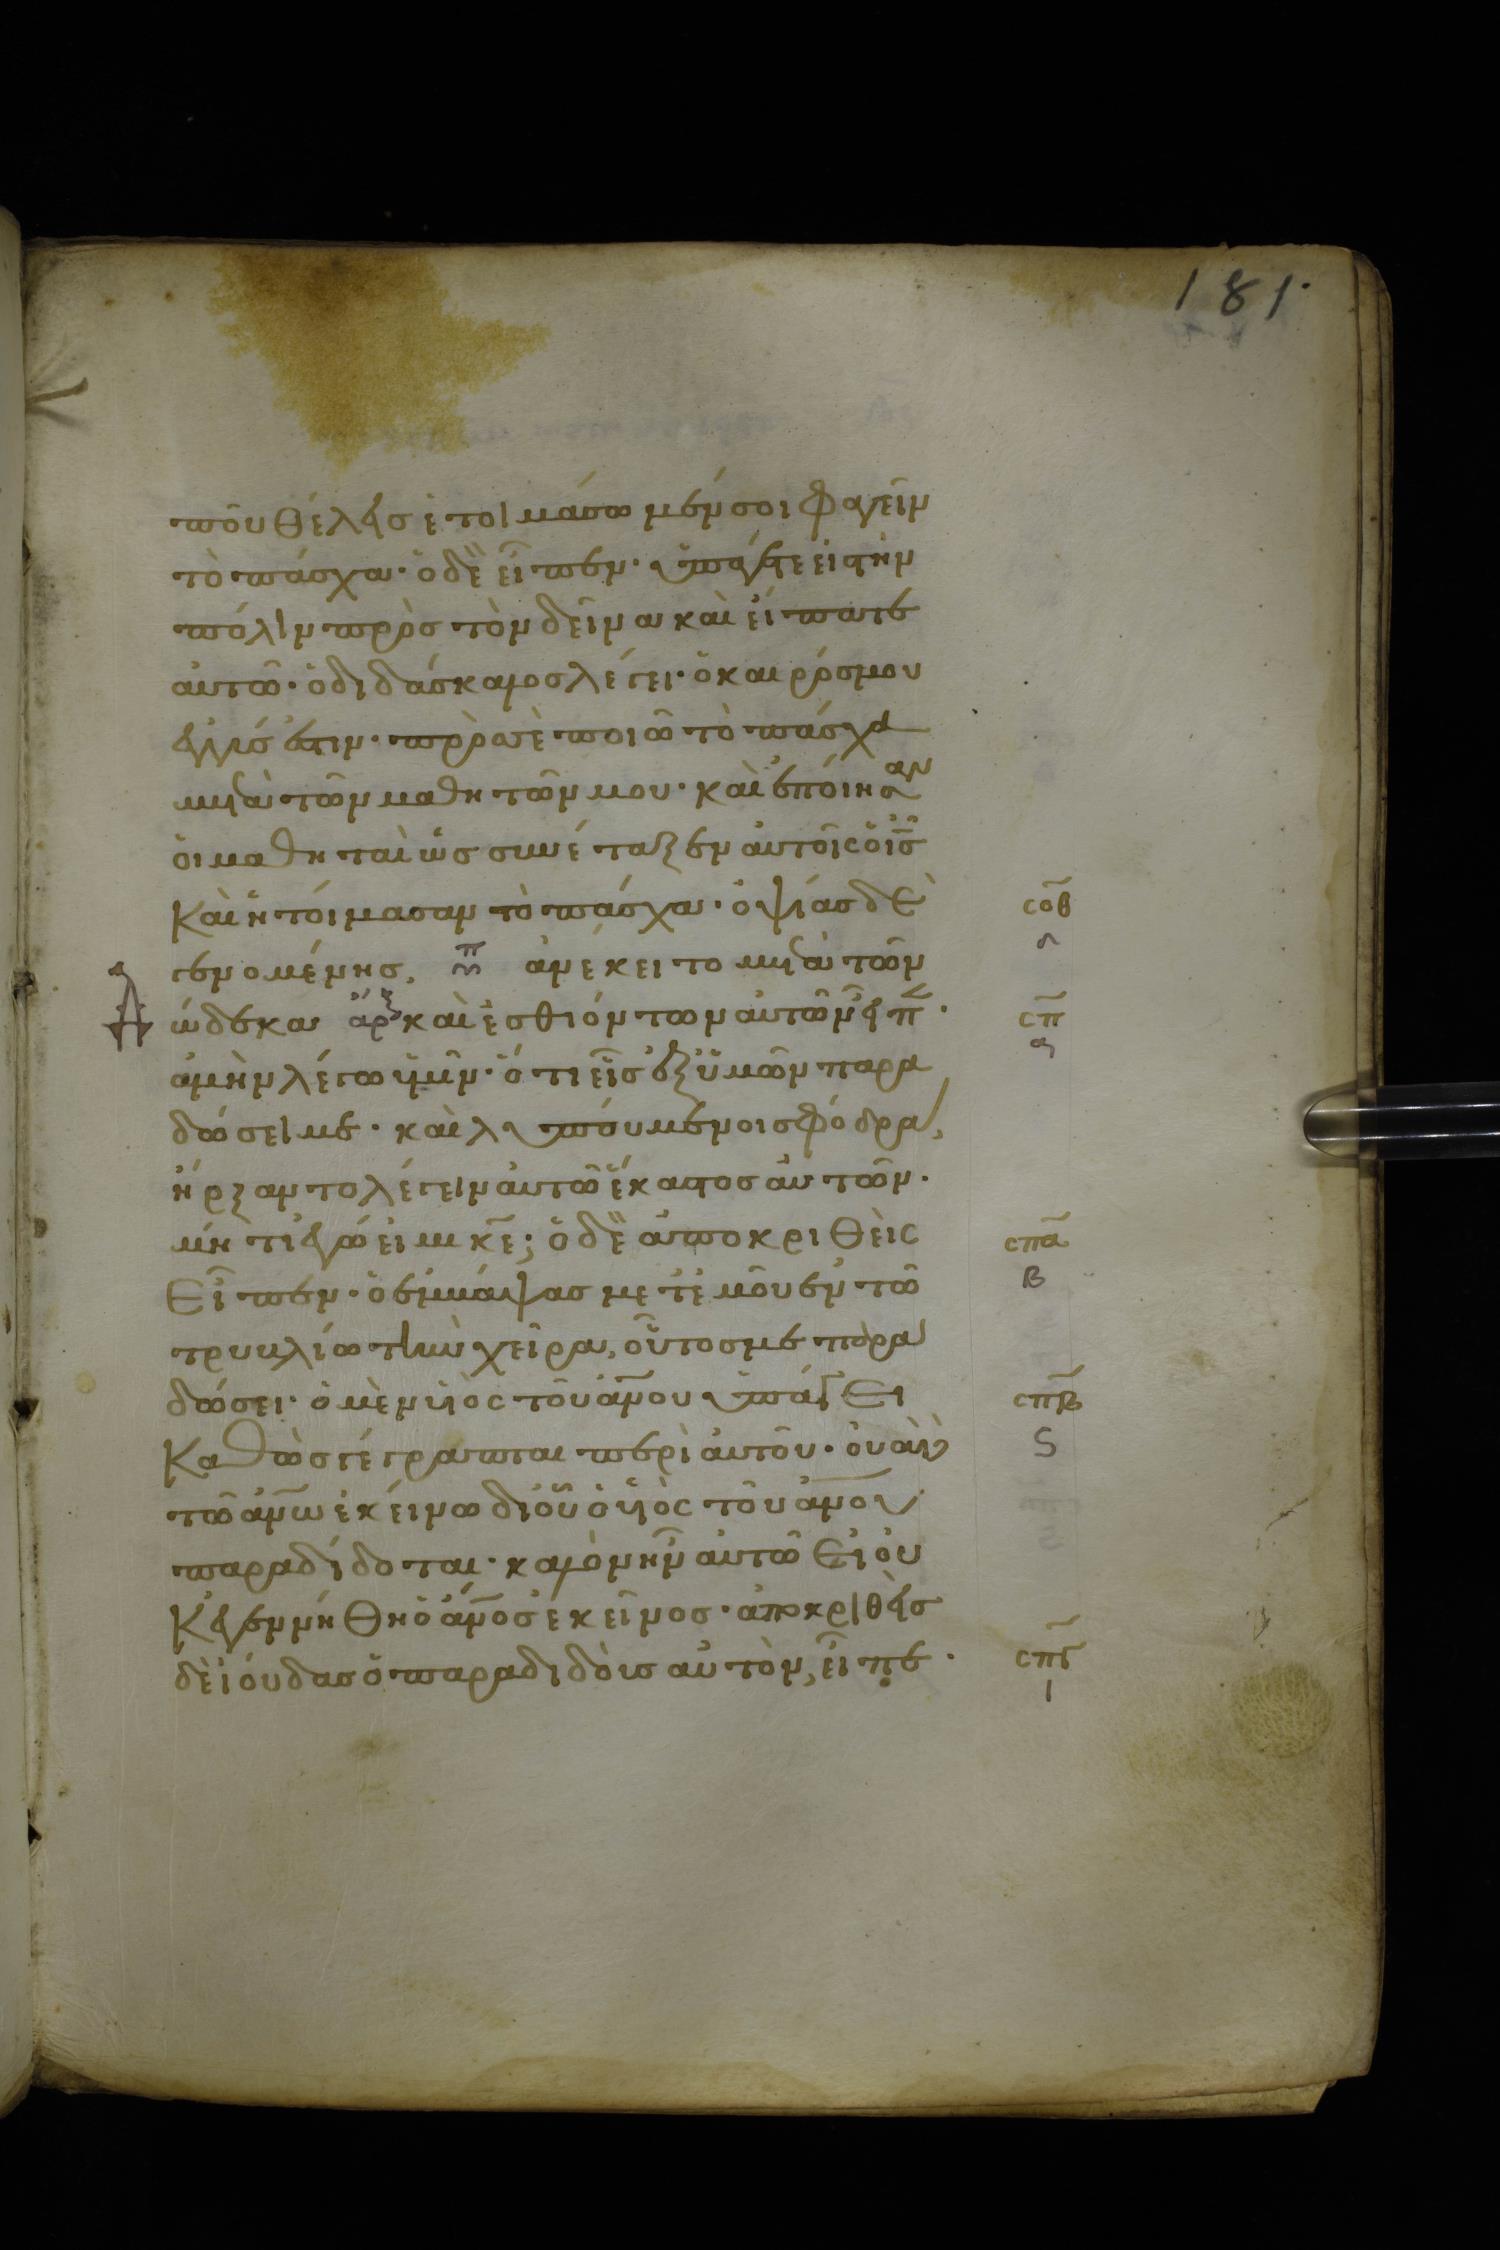 181.
ποῦ θέλεις ἑτοιμάσωμέν σοι φαγεῖν
τὸ πάσχα· ὁ δὲ εἶπεν· ὑπάγετε εἰς τὴν
πόλιν πρὸς τὸν δεῖνα καὶ εἴπατε
αὐτῶ· ὁ διδάσκαλος λέγει· ὁ καιρός μου
ἐγγύς ἐστιν· πρὸς σὲ ποιῶ τὸ πάσχα
μετὰ τῶν μαθητῶν μου· καὶ ἐποίησαν
ὁι μαθηταὶ ὡς συνέταξεν αὐτοῖς ὁ ις
καὶ ἡτοίμασαν τὸ πάσχα· ὀψίας δὲ σοθ
γενομένης, ἀνέκειτο μετὰ τῶν δ
δώδεκα ἀρχ καὶ ἐσθιόντων αὐτῶν εἶπ· σπ
ἀμὴν λέγω ὑμῖν· ὅτι εἷς ἐξ ὑμῶν παρα α
δώσει με· καὶ λυπούμενοι σφόδρα,
ἤρξαντο λέγειν αὐτῶ ἕκαστος αὐτῶν·
μήτι ἐγώ εἰμι κε; ὁ δὲ ἀποκριθεὶς σπα
εἶπεν· ὁ ἐμβάψας μετ ἐμοῦ ἐν τῶ β
τρυβλίω τὴν χεῖρα, οὗτος με παρα
δώσει· ὁ μὲν υἱὸς τοῦ ανου ὑπάγει σπβ
καθὼς γέγραπται περὶ αὐτοῦ· οὐαὶ δὲ ς
τῶ ανω ἐκείνω δι οὗ ὁ υἱὸς τοῦ ανου
παραδίδοται· καλὸν ἦν αὐτῶ εἰ οὐ
κ ἐγεννήθη ὁ ανος ἐκεῖνος· ἀποκριθεὶς
δὲ ἰούδας ὁ παραδιδοὺς αὐτὸν, εἶπε· σπγ
ι